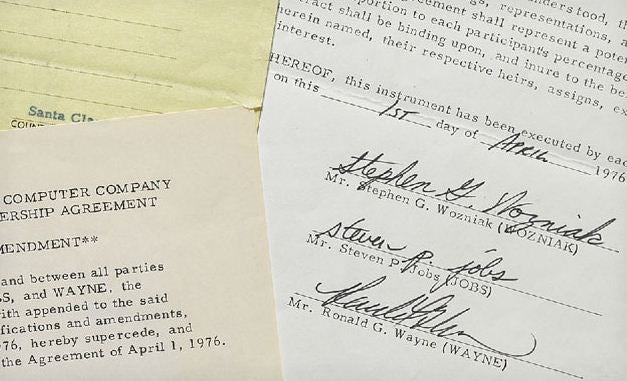 Santa Cla
COUN
COMPUTER COMPANY
ERSHIP AGREEMENT
MENDMENT**
and between all parties
S, and WAYNE, the
ith appended to the said
fications and amendments,
76, hereby supercede, and
the Agreement of April 1, 1976.
gs, representations, a
eement shall represent a poten
portion to each participant's percentage
ract shall be binding upon, and inure to the be
herein named, their respective heirs, assigns, ex
interest.
HEREOF, this instrument has been executed by eac
on this 1ST day of APRIL 1976
Stephen G. Wozniak
Mr. Stephen G. Wozniak (WOZNIAK)
steven P. jobs
Mr. Steven P. Jobs (JOBS)
Mr. Ronald G. Wayne (WAYNE)